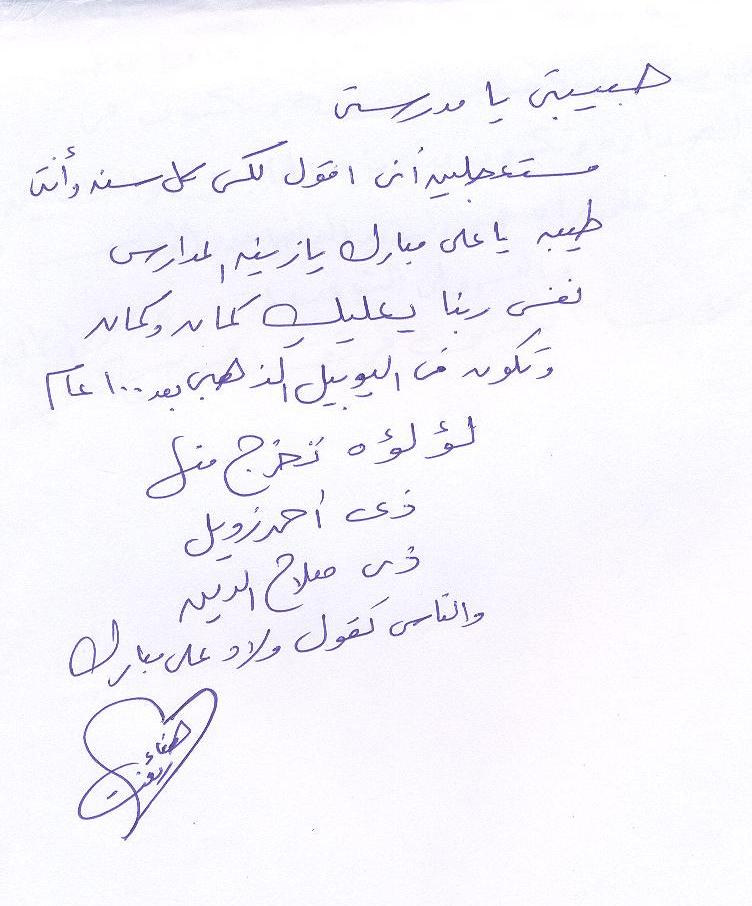 حبيبتى يا مدرستى
مستعجلين أنى اقول لكى كل سنه وأنتى
طيبه يا على مبارك يا زينه المدارس
نفسى ربنا يعليكِ كمان وكمان
وتكون فى اليوبيل الذهبى بعد ١٠٠ عام
لؤلؤه تخرج منك
زى أحمد زويل
زى صلاح الدين
والناس تقول ولاد على مبارك
صفاء
رفعت